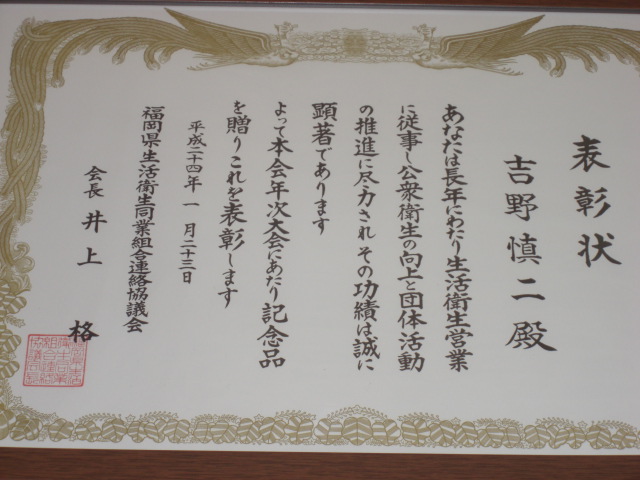 表彰状
吉野慎二殿
あなたは長年にわたり生活衛生営業
に従事し公衆衛生の向上と団体活動
の推進に尽力されその功績は誠に
顕著であります
よって本会年次大会にあたり記念品
を贈りこれを表彰します
平成二十四年一月二十三日
福岡県生活衛生同業組合連絡協議会
会長井上格